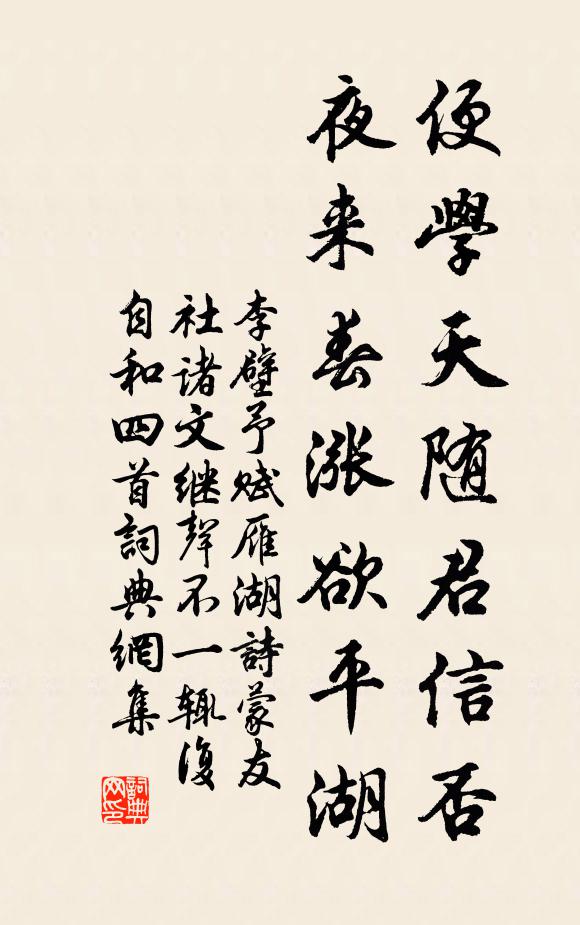 便學天随君信否
夜来春漲欲平湖
李壁予賦雁湖詩蒙友
社诸文继聲不一輒復
自和四首詞典網集
詞典
网印